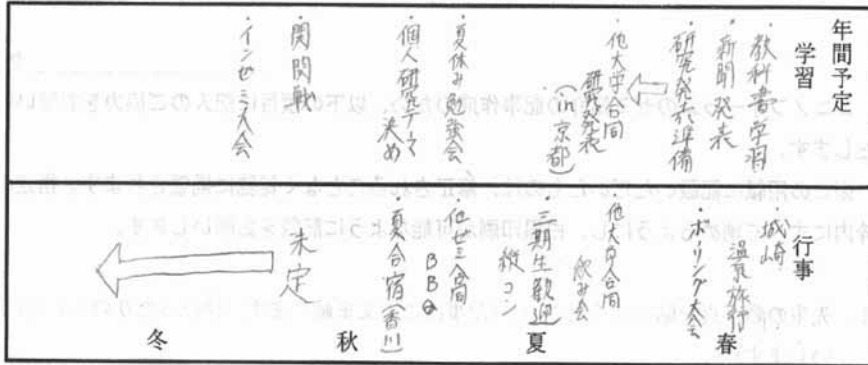 年間予定
学習
・教科書学習
・新聞発表
・研究発表準備
・他大学合同
研究発表
(in 京都)
・夏休み勉強会
・個人研究テーマ
決め
・関関戦
・インゼミ大会
行事
・城崎
温泉旅行
・ボーリング大会
・他大学合同
飲み会
・三期生歓迎
縦コン
・他ゼミ合同
BBQ
・夏合宿(香川)
未定
春
夏
秋
冬